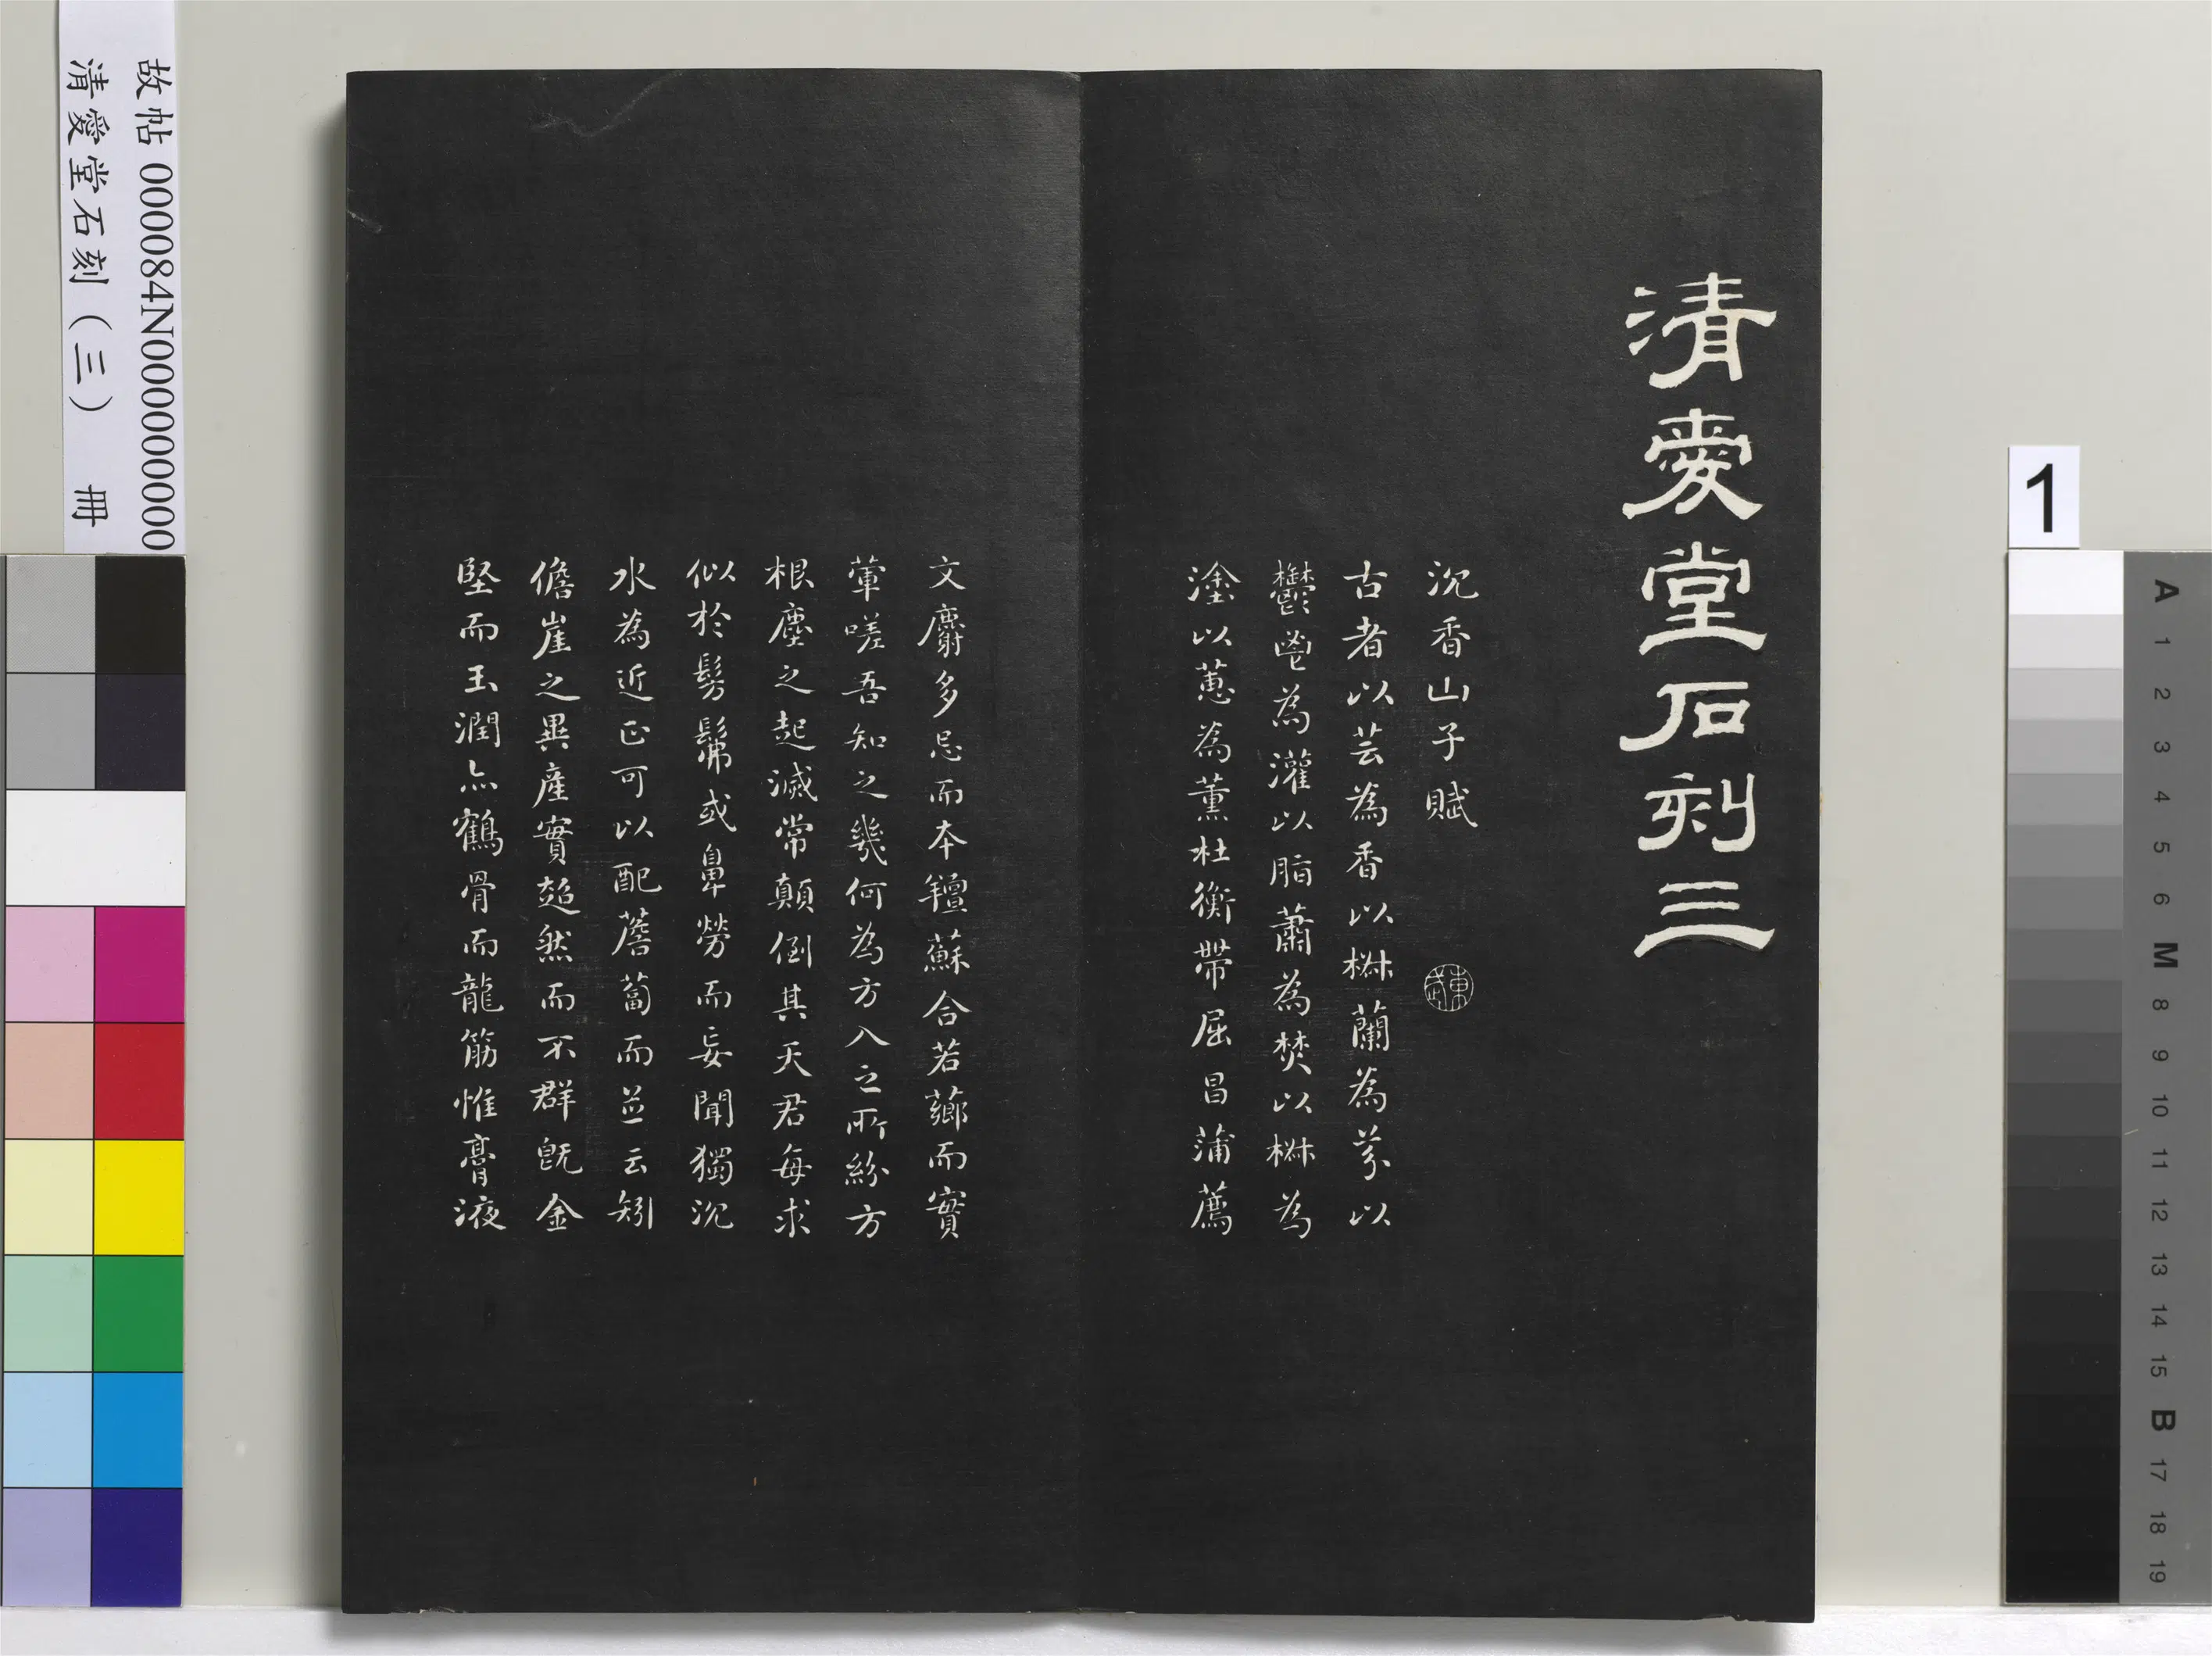 清愛堂石刻三
沉香山子賦
東武
古者以芸為香以椒蘭為芬以
欝鬯為灌以脂蕭為焚以椒為
塗以蕙為薰杜衡帶屈昌蒲薦
文麝多忌而本羶蘇合若薌而實
葷嗟吾知之幾何為方入之所紛方
根塵之起滅常顛倒其天君每求
似於髣髴或鼻勞而妄聞獨沉
水為近正可以配薝蔔而並云矧
儋崖之異產實超然而不群既金
堅而玉潤亦鶴骨而龍筋惟膏液
故帖 000084N000000000
清愛堂石刻（三） 冊
1
A 1 2 3 4 5 6 M 8 9 10 11 12 13 14 15 B 17 18 19